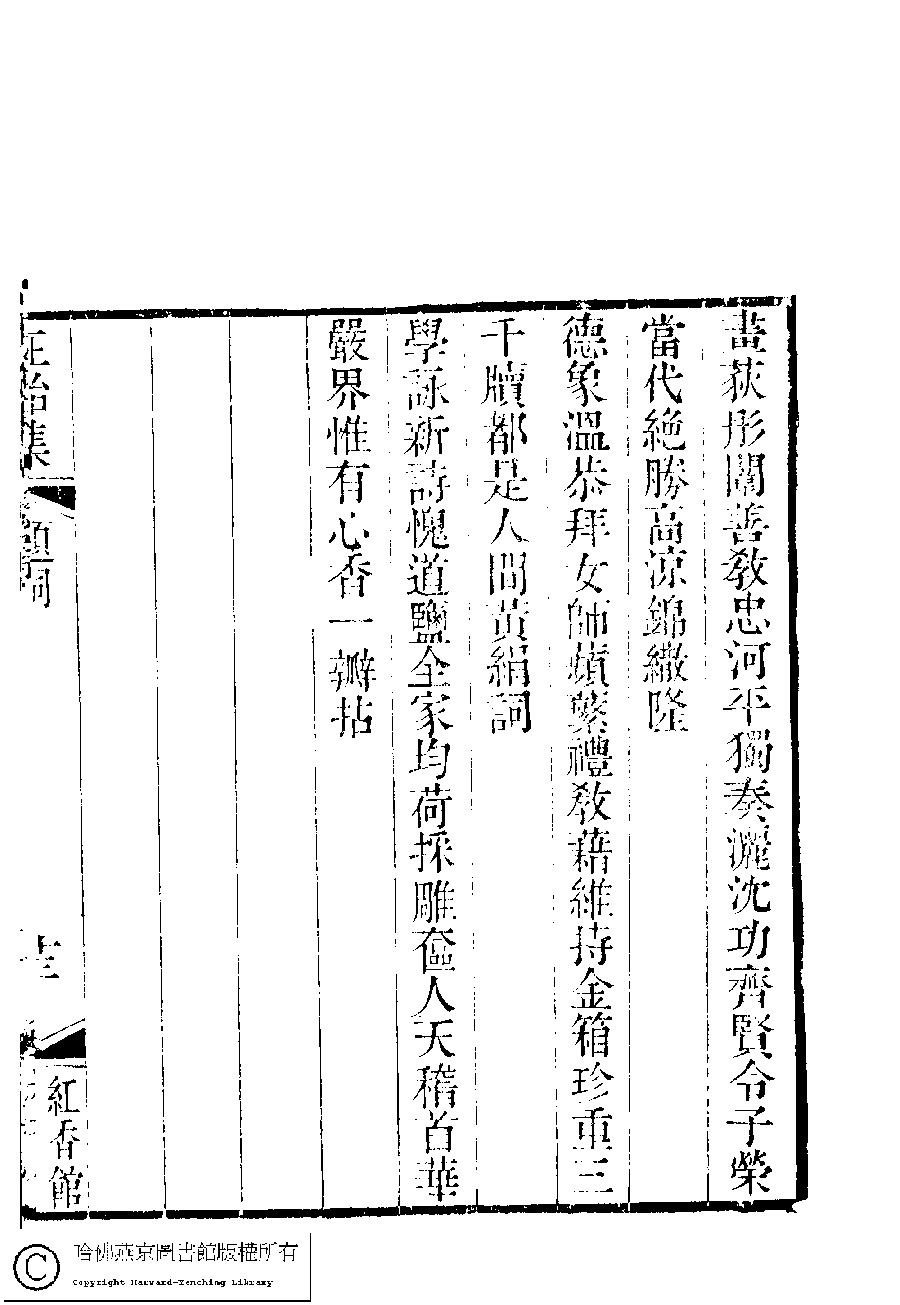 畫荻彤闈善教忠河平獨奏灑沈功齊賢令子榮
當代絶勝高涼錦繖隆
德象溫恭拜女師蘋蘩禮教藉維持金箱珍重三
千牘都是人間黃絹詞
學詠新詩愧道鹽全家均荷採雕奩人天稽首華
嚴界惟有心香一瓣拈
正始集
題詞
十三
紅香館
哈佛燕京圖書館版權所有
Copyright Harvard-Yenching Library